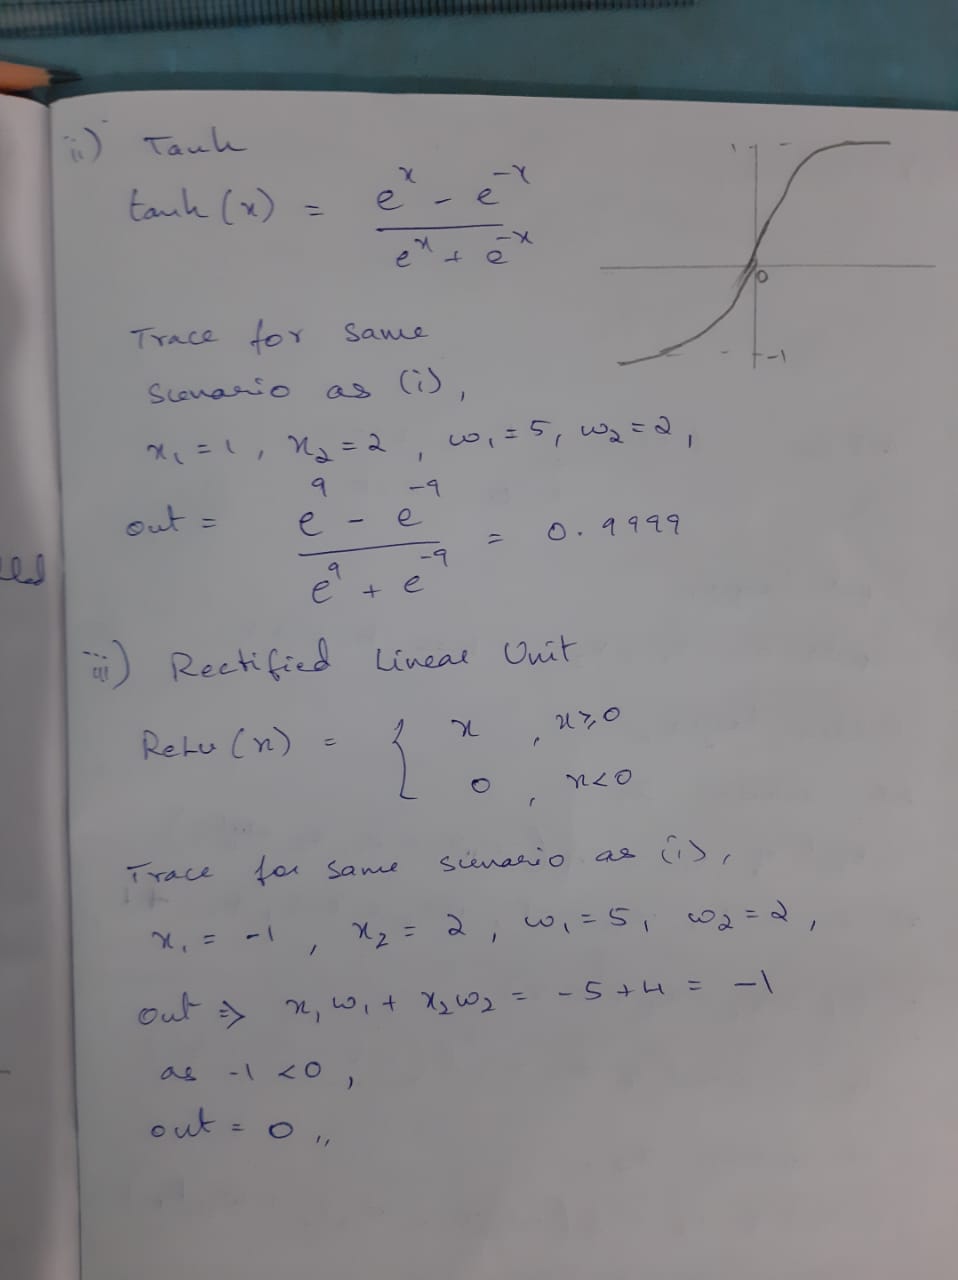 ii) Tanh
tanh(x) = (e^x - e^-x) / (e^x + e^-x)
1
0
-1
Trace for same
scenario as (i),
x₁ = 1, x₂ = 2, w₁ = 5, w₂ = 2,
out = (e^9 - e^-9) / (e^9 + e^-9) = 0.9999
iii) Rectified Linear Unit
ReLu(x) = { x , x≥0
0 , x<0
Trace for same scenario as (i),
x₁ = -1, x₂ = 2, w₁ = 5, w₂ = 2,
out ⇒ x₁w₁ + x₂w₂ = -5+4 = -1
as -1 <0,
out = 0 ,,